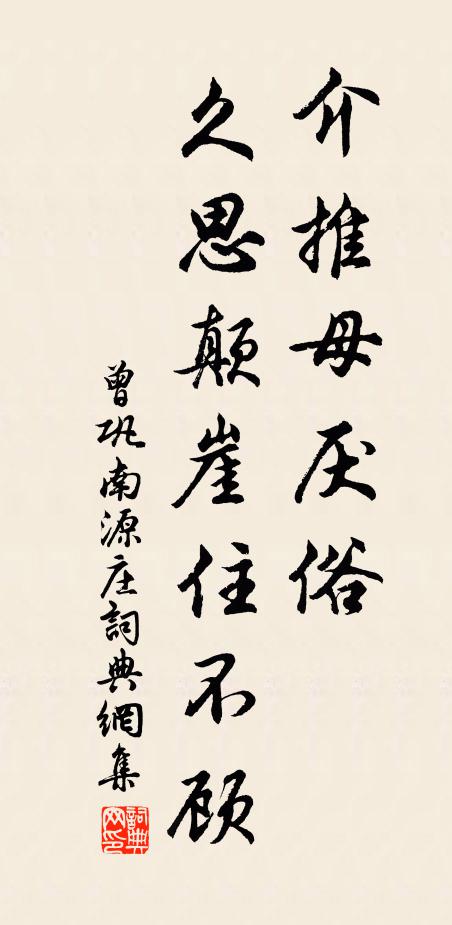 介推母厌俗
久思颠崖住不顾
曾巩南源庄詞典網集
詞典
网印